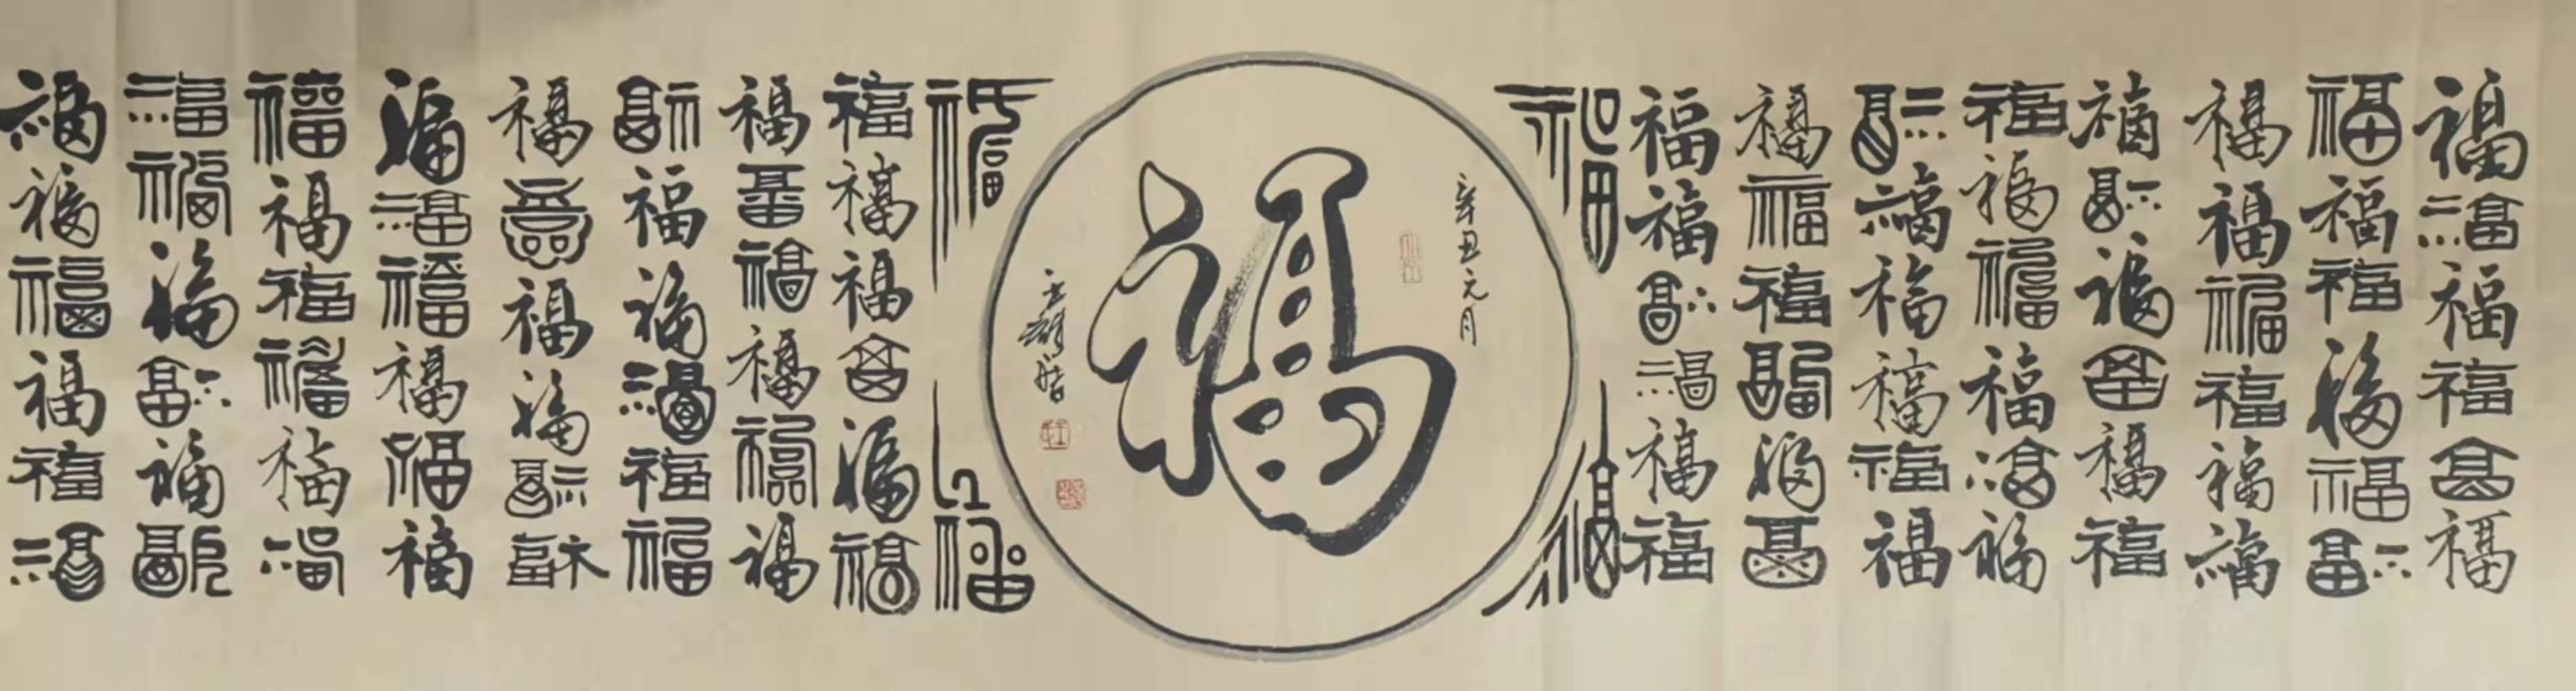 福福福福福福
福福福福福福
福福福福福福
福福福福福福
福福福福福福
福福福福福福
福福福福福福
福福福福福福
福福
辛丑元月
福
福福
福福福福福福
福福福福福福
福福福福福福
福福福福福福
福福福福福福
福福福福福福
福福福福福福
福福福福福福